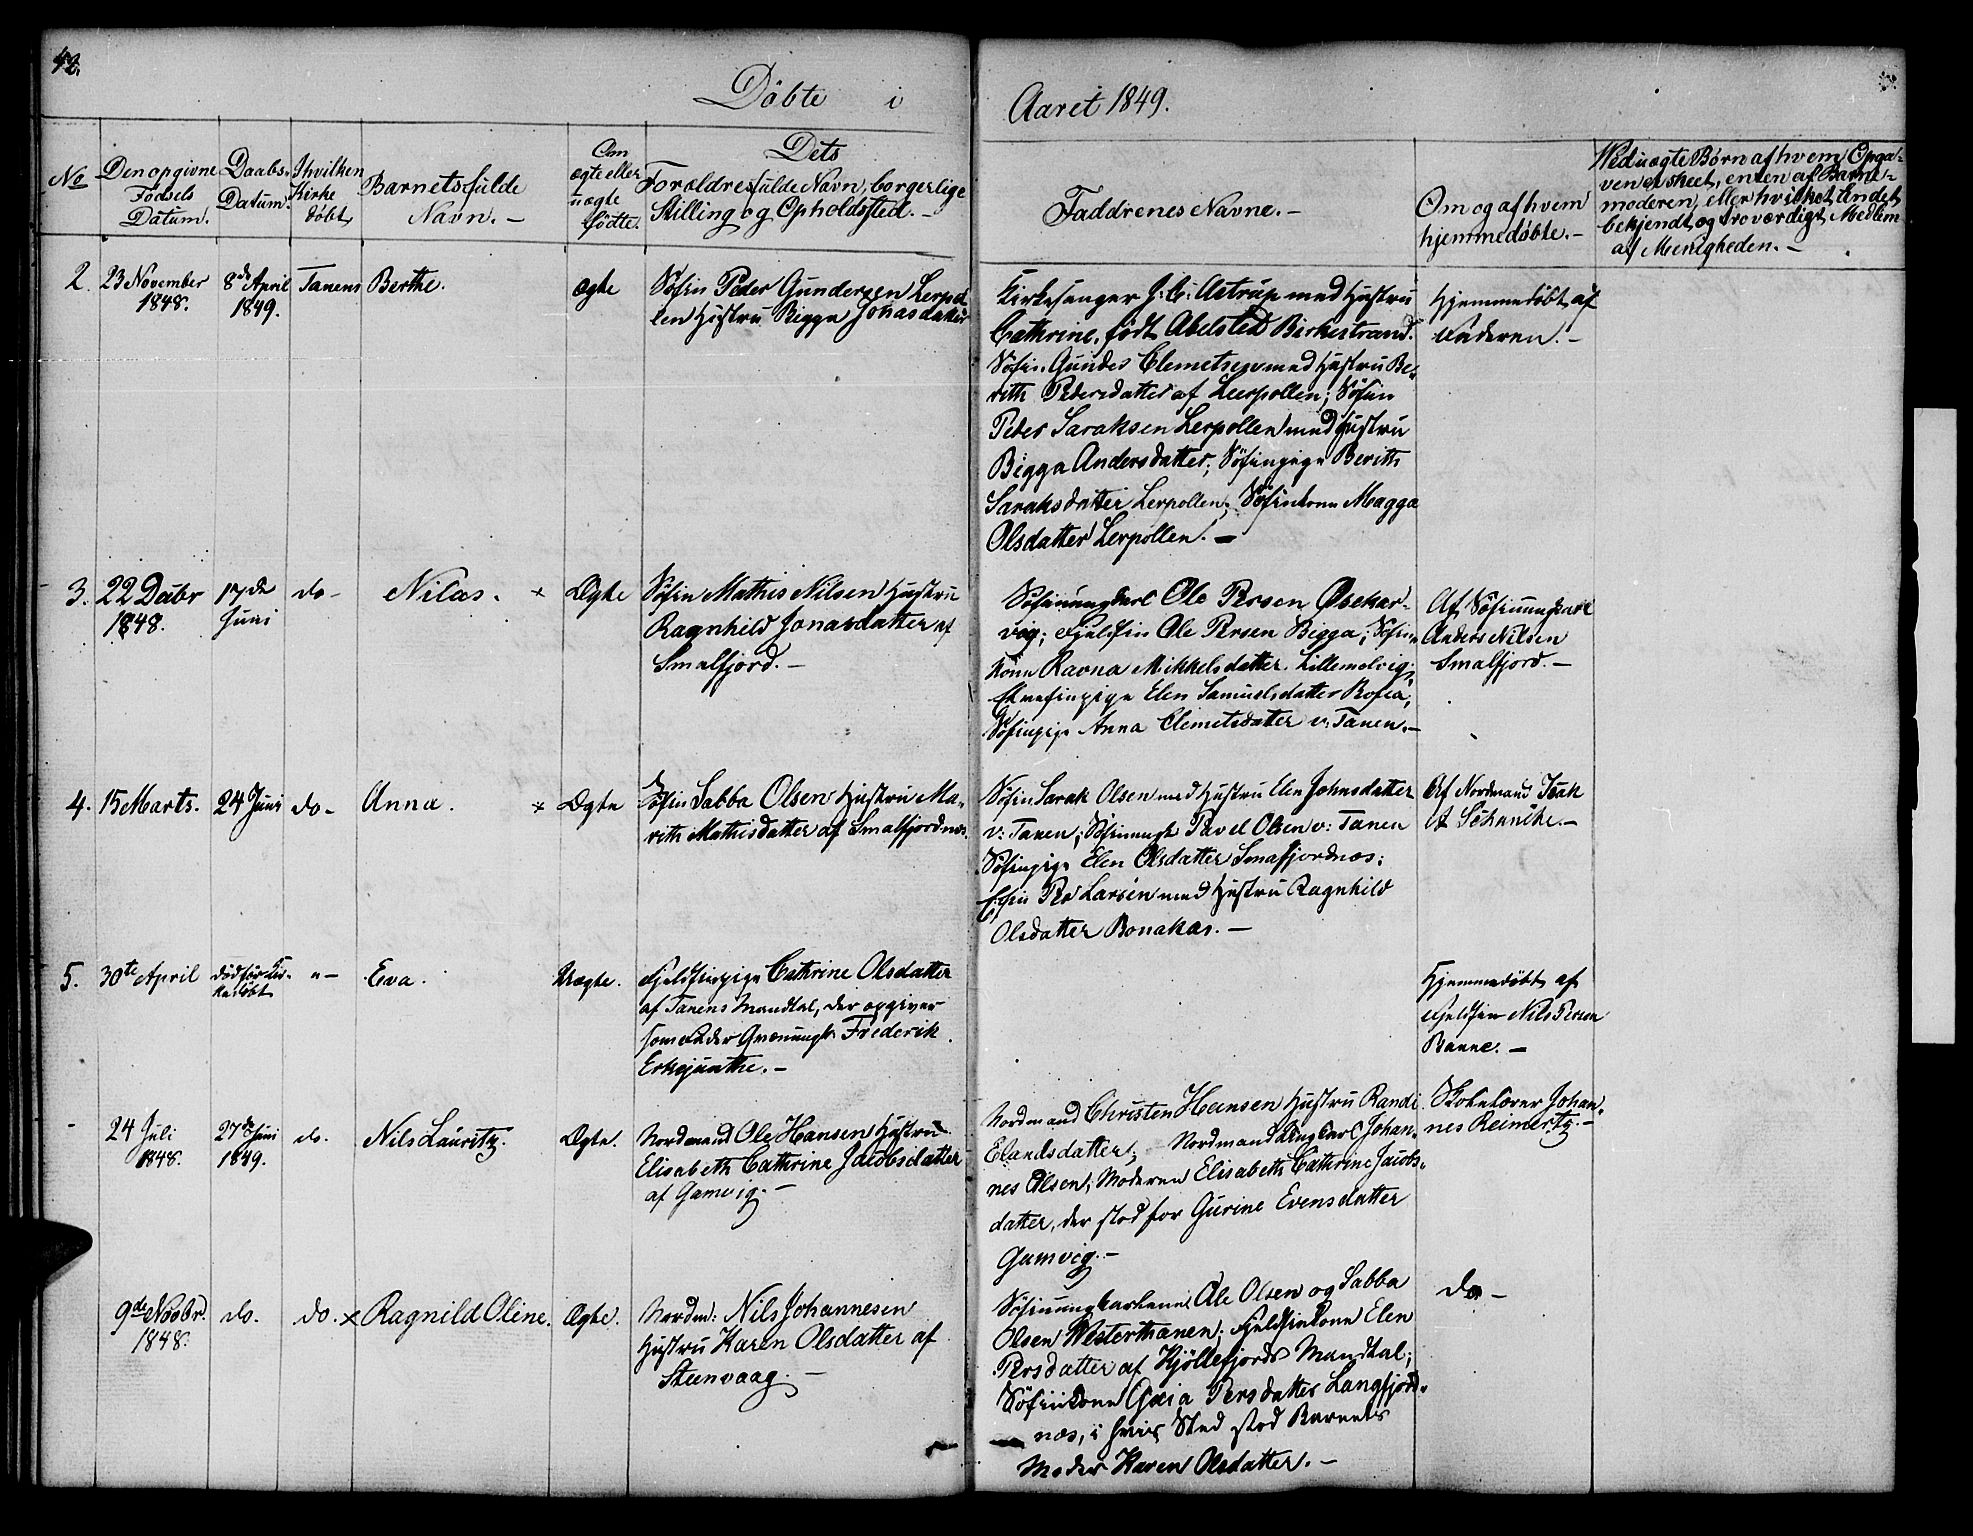 42.
Döbte i
Aaret 1849.
No
Den opgivne
Födsels
Datum.
Daabs-
Datum.
I hvilken
Kirke
döbt
Barnets fulde
Navn. -
Om
ægte eller
uægte
födte.
Dets
Forældres fulde Navn, borgerlige
Stilling og Opholdssted. -
Faddrenes Navne. -
Om og af hvem
hjemmedöbte. -
Ved uægte Børn af hvem Opga-
ven er skeet, enten af Barne-
moderen, eller hvilket andet
bekjendt og troværdigt Medlem
af Menigheden. -
2.
23 November
1848.
8de April
1849.
Tanens
Berthe.
ægte
Söfin Peder Gundersen Lerpol
len Hustru Bigga Jonasdatter
Kirkesanger J. C. Astrup med Hustru
Cathrine, født Abelsted Birkestrand.
Söfin Gunder Clemetsen med Hustru Be-
rith Pedersdatter af Leerpollen; Söfin
Peder Saraksen Lerpollen med Hustru
Bigga Andersdatter; Söfinpige Berith
Saraksdatter Lerpollen; Söfinkone Magga
Olsdatter Lerpollen. -
Hjemmedöbt af
Faderen. -
3.
22 Decbr
1848.
17de
Juni
do-
Nilas. x
Ægte
Söfin Mathis Nilsen Hustru
Ragnhild Jonasdatter af
Smalfjord. -
Söfinungkarl Ole Persen
vig; Fjeldfin Ole Persen Bigga; Söfin-
kone Ravna Mikkelsdatter Lillemolvig;
Elen Samuelsdatter
Söfinpige Anna Clemetsdatter v: Tanen. -
Af Söfinungkarl
Anders Nilsen
Smalfjord. -
4.
15 Marts.
24 Juni
do-
Anna. x
Ægte
Söfin Sabba Olsen Hustru Ma-
rith Mathisdatter af Smalfjordnæs.
Söfin Sarak Olsen med Hustru Elen Johnsdatter
v: Tanen; Söfinungk. Pavel Olsen v: Tanen
Söfinpige Elen Olsdatter Smalfjordnæs;
Per Larsen med Hustru Ragnhild
Olsdatter Bonakas. -
Af Nordmand Isak
Schancke. -
5.
30te April
död før Kir-
kedöbt
"-
Eva.
Uægte.
Fjeldfinpige Cathrine Olsdatter
af Tanens Mandtal, der opgiver
som Fader Frederik
-
Hjemmedöbt af
Fjeldfin Nils Persen
Banne. -
-
24 Juli
1848.
27de Juni
1849.
do.
Nils Lauritz.
Ægte.
Nordmand Ole Hansen Hustru
Elisabeth Cathrine Jacobsdatter
af Gamvig. -
Nordmand Christen Hansen Hustru Randi
Elandsdatter; Nordmand Ungkarl Johan-
nes Olsen; Moderen Elisabeth Cathrine Jacobs-
datter, der stod for Gurine Evensdatter
Gamvig. -
Skolelærer Johan-
nes Reimertz. -
9de Novbr.
1848.
do.
do. x
Ragnild Oline.
Ægte.
Nordm: Nils Johannesen
Hustru Karen Olsdatter af
Steenvaag. -
Söfinungkarlene Ole Olsen og Sabba
Olsen Westertanen; Fjeldfinkone Elen
Persdatter af Kjöllefjords Mandtal;
Söfinkone Persdatter Langfjord-
næs, i hvis Sted stod Barnets
Moder Karen Olsdatter. -
do -